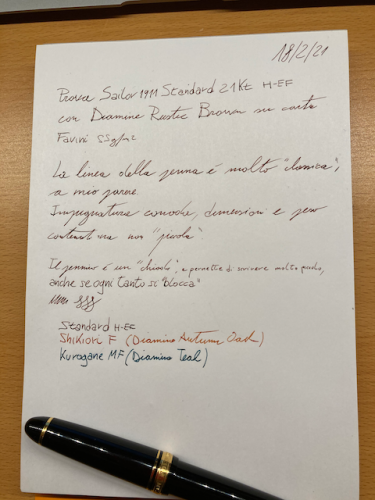 18/2/21
Prova Sailor 1911 Standard 21Kt H-EF
con Diamine Rustic Brown su carta
Favini 55g/m2
La linea della penna é molto "classica",
a mio parere.
Impugnatura comoda, dimensioni e peso
contenuti ma non "piccola"
Il pennino é un "chiodo", e permette di scrivere molto piccolo,
anche se ogni tanto si "blocca"
Standard H-EF
Shikiori F (Diamine Autumn Oak)
Kurogane MF (Diamine Teal)